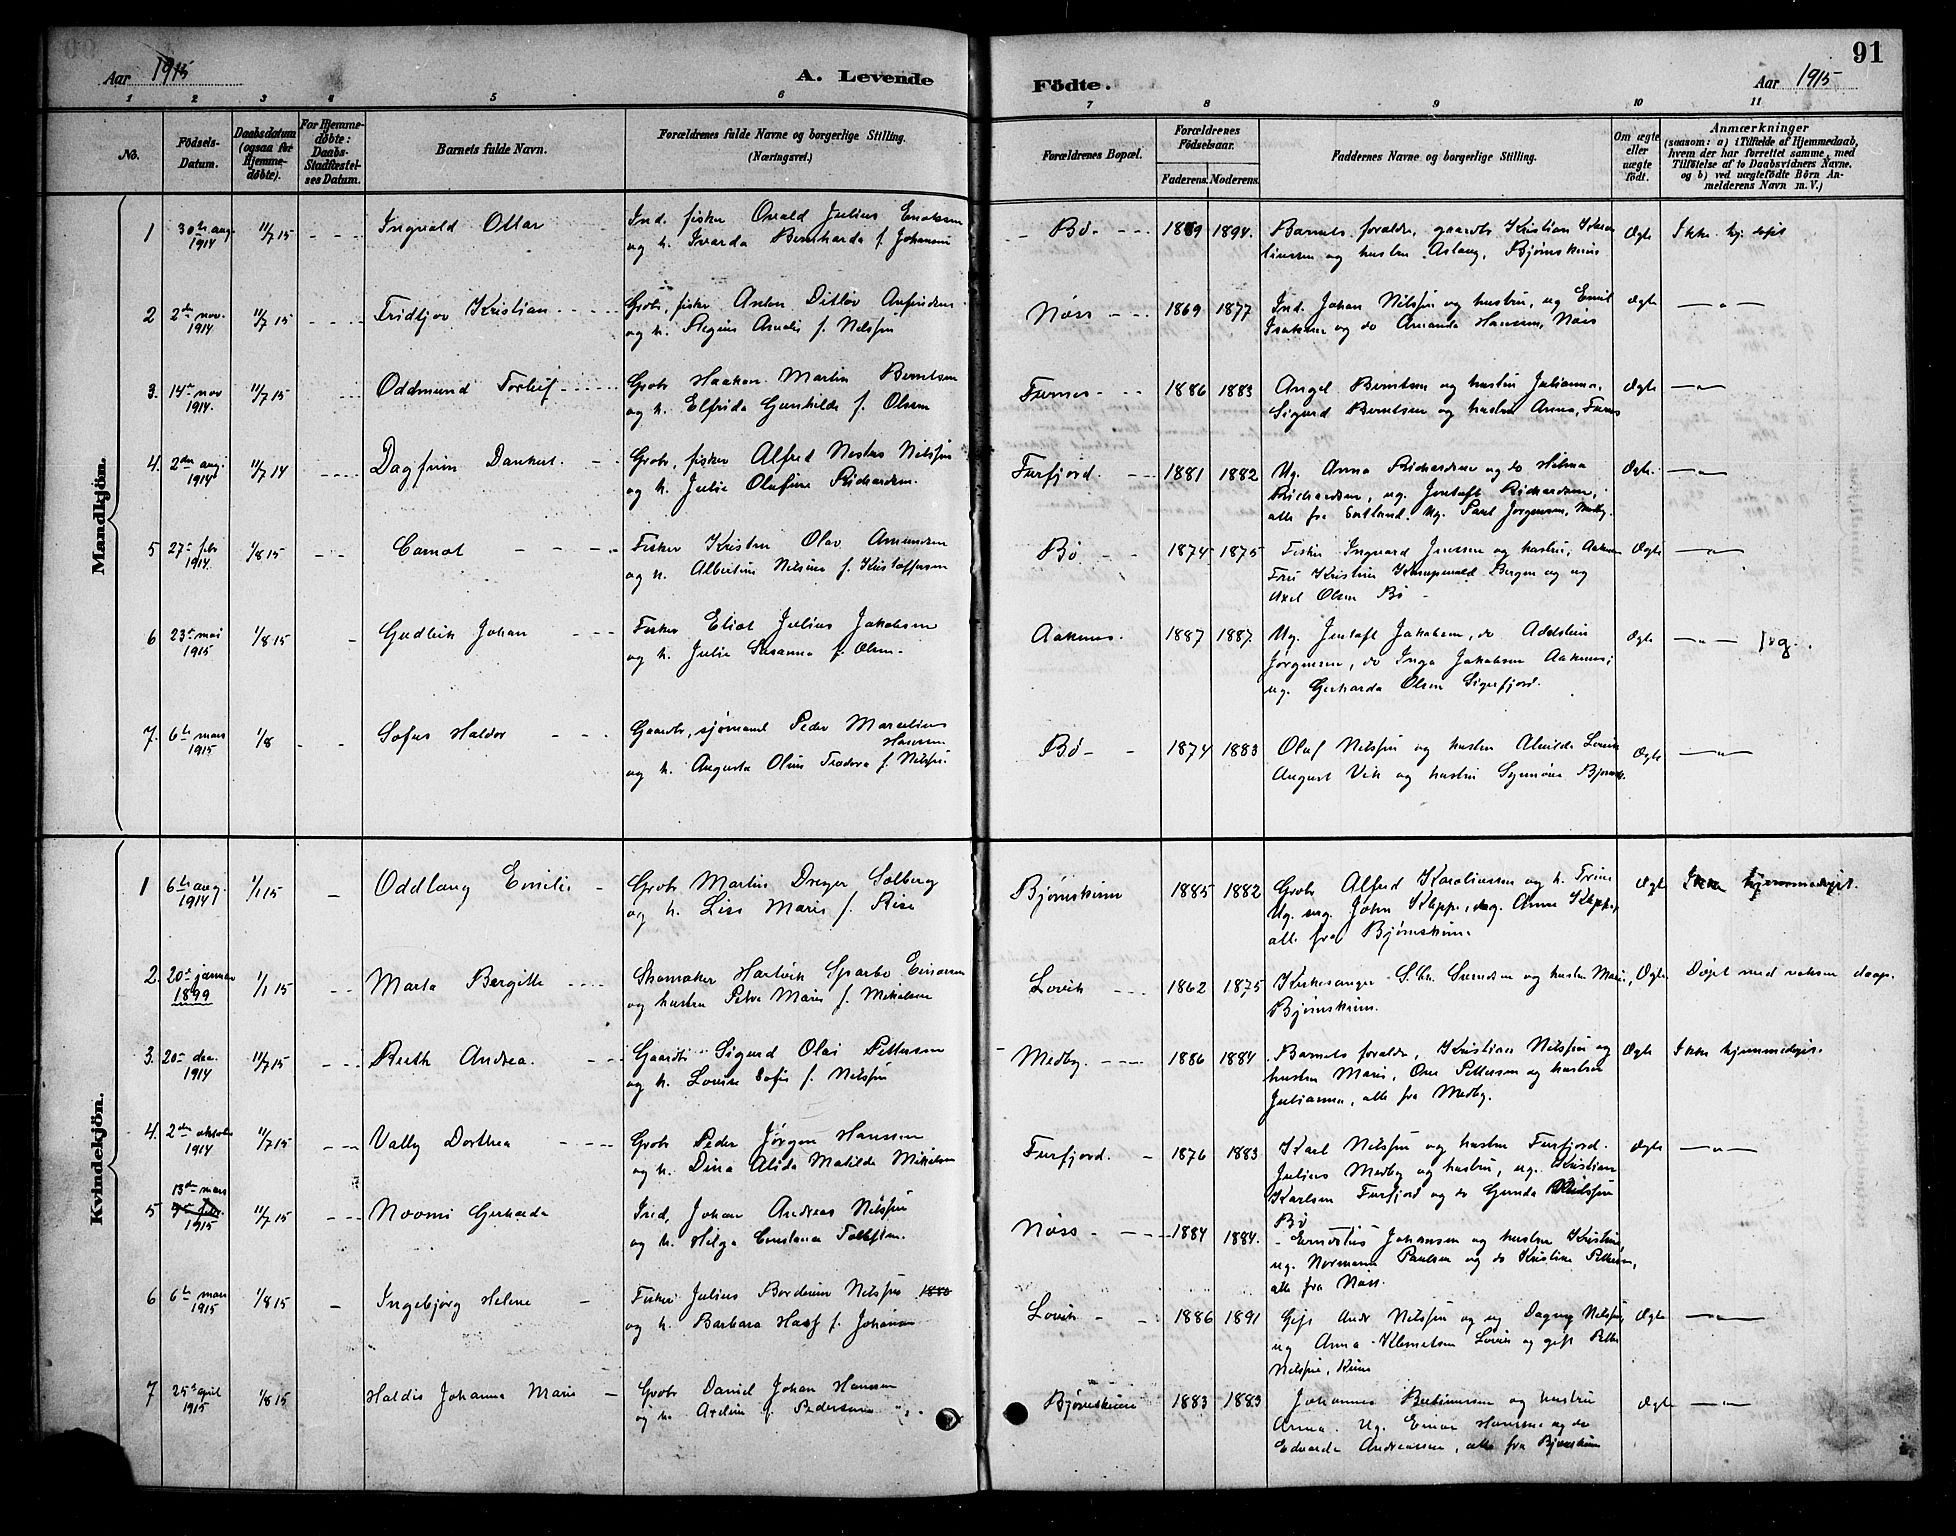 Aar 1915
A. Levende
Fødte.
Aar 1915
91
1 2 3 4 5 6 7 8 9 10 11
No.
Födsels-Datum.
Daabsdatum (ogsaa for Hjemme-döbte).
For Hjemme-döbte: Daabs-Stadfæstel-ses Datum.
Barnets fulde Navn.
Forældrenes fulde Navne og borgerlige Stilling.
(Næringsvei.)
Forældrenes Bopæl.
Forældrenes Födselsaar.
Faderens. Moderens.
Faddernes Navne og borgerlige Stilling.
Om ægte eller uægte födt.
Anmærkninger
(saasom: a) i Tilfælde af Hjemmedaab, hvem der har forrettet samme, med Tilföielse af to Daabsvidners Navne, og b) ved uægtefödte Börn An-melderens Navn m. V.)
Mandkjön.
1 30te aug. 1914 11/7 15 Ingvald Ottar Ind. fisker Osvald Julius
og h. Ivarda Bernharda f. Johansen
Bø 1889 1894. Barnets forældre, gaardbr. Kristian
og hustru Aslaug, Bjørnskinn Ægte Ikke hj. døpt
2 2den nov. 1914 11/7 15 Fridtjov Kristian Grobr, fisker Anton Ditlov
og h. Regine Amalie f. Nilssen
Nøss 1869 1877 Ind. Johan Nilssen og hustru, ug Emil
Isaksen og do Amanda Hansen, Nøss Ægte — " —
3. 14de nov 1914. 11/7 15 Oddmund Torleif Grobr Haakon Martin Berntsen
og h. Elfrida Gunhilde f. Olsen
Furnes 1886 1883 Angel Berntsen og hustru Julianna,
Sigurd Berntsen og hustru Anna, Furnes Ægte — " —
4. 2den aug. 1914 11/7 14 Dagfinn Dankert Grobr, fisker Alfred Nestus Nilssen
og h. Julie Olufine Rickardsen.
Furfjord. 1881 1882 Ug. Anna Rickardsen og do Hilma
Rickardsen, ug. Jentoft Rickardsen,
alle fra Sortland. Ug. Paul Jørgensen, Medby. Ægte. — " —
5 27de febr 1914. 1/8 15 Carnot Fisker Kristen Olav Amundsen
og h. Albertine Nilsine f. Kristoffersen
Bø 1874 1875 Fisker Ingvard Jenssen og hustru, Aaknes
Fru Kristine Bergen og ug
Axel Olsen Bø Ægte — " —
6 23de mai 1915 1/8 15 Gudleik Johan Fisker Eliot Julius Jakobsen
og h. Julie Susanna f. Olsen
Aaknes. 1887 1887 Ug. Jentoft Jakobsen, do Adelstein
Jørgensen, do Inga Jakobsen Aaknes,
ug. Gerharda Olsen Sigerfjord. Ægte — " —
7. 6te mars 1915 1/8 Sofus Haldor Gaardbr, sjømand Peder Marcelius
Hansen
og h. Augusta Oline Teodora f. Nilssen.
Bø 1874 1883 Oluf Nilssen og hustru Alvilde Lovik
August Vik og hustru Synnøve Ægte — " —
Kvindekjön.
1 6te aug. 1914 1/1 15 Oddlaug Emilie Grobr Martin Dreyer Solberg
og h. Lise Marie f. Rise
Bjørnskinn 1885 1882 Grobr Alfred Karoliussen og h. Trine
Ug. John Kleppe, ug. Anne Kleppe,
alle fra Bjørnskinn. Ægte Ikke hjemmedøpt.
2. 20de januar 1899 1/1 15 Marta Bergitte Skomaker Hartvik Sparbo Einarsen
og hustru Petra Marie f. Mikalsen
Lovik 1862 1875 Kirkesanger S. Chr. og hustru Marie,
Bjørnskinn. Ægte Døpt med voksen daap
3. 20de des. 1914 11/7 15 Ruth Andrea. Gaardbr Sigurd Olai Pettersen
og h. Lovise Sofie f. Nilssen
Medby. 1886 1884 Barnets forældre, Kristines Nilssen og
hustru Marie, Ove Pettersen og hustru
Julianna, alle fra Medby. Ægte Ikke hjemmedøpt.
4. 2den oktober 1914 11/7 15 Vally Dorthea Grobr Peder Jørgen Hanssen
og h. Dina Alida Matilde Mikalsen
Furfjord. 1876 1883 Karl Nilssen og hustru Furfjord.
Julius Medby og hustru, ug. Kristian
Karlsen Furfjord og do Gunda Nilssen
Bø Ægte — " —
5 13de mars 1915 11/7 15 Noomi Gerharda Ind. Johan Andreas Nilssen
og h. Helga Constance
Nøss 1884 1884. Ernestus Johansen og hustru Kristine
ug. Normann Paulsen og do Kristine Pettersen,
alle fra Nøss.
6 6te mars 1915 1/8 15 Ingebjørg Helene Fisker Julius Bordevin Nilssen 1880
og h. Barbara f. Johansen
Lovik 1886 1891 Gift Andr Nilssen og ug Dagny Nilssen,
ug Anna Klemetsen Lovik og gift
Nilssen, Ægte — " —
7 25de april 1915 1/8 15 Haldis Johanna Marie Grobr Daniel Johan Hansen
og h. f. Pedersen
Bjørnskinn 1883 1883 Johannes og hustru
Anna. Ug. Einar Hansen og do
Edvarda Andreassen, alle fra Bjørnskinn Ægte — " —